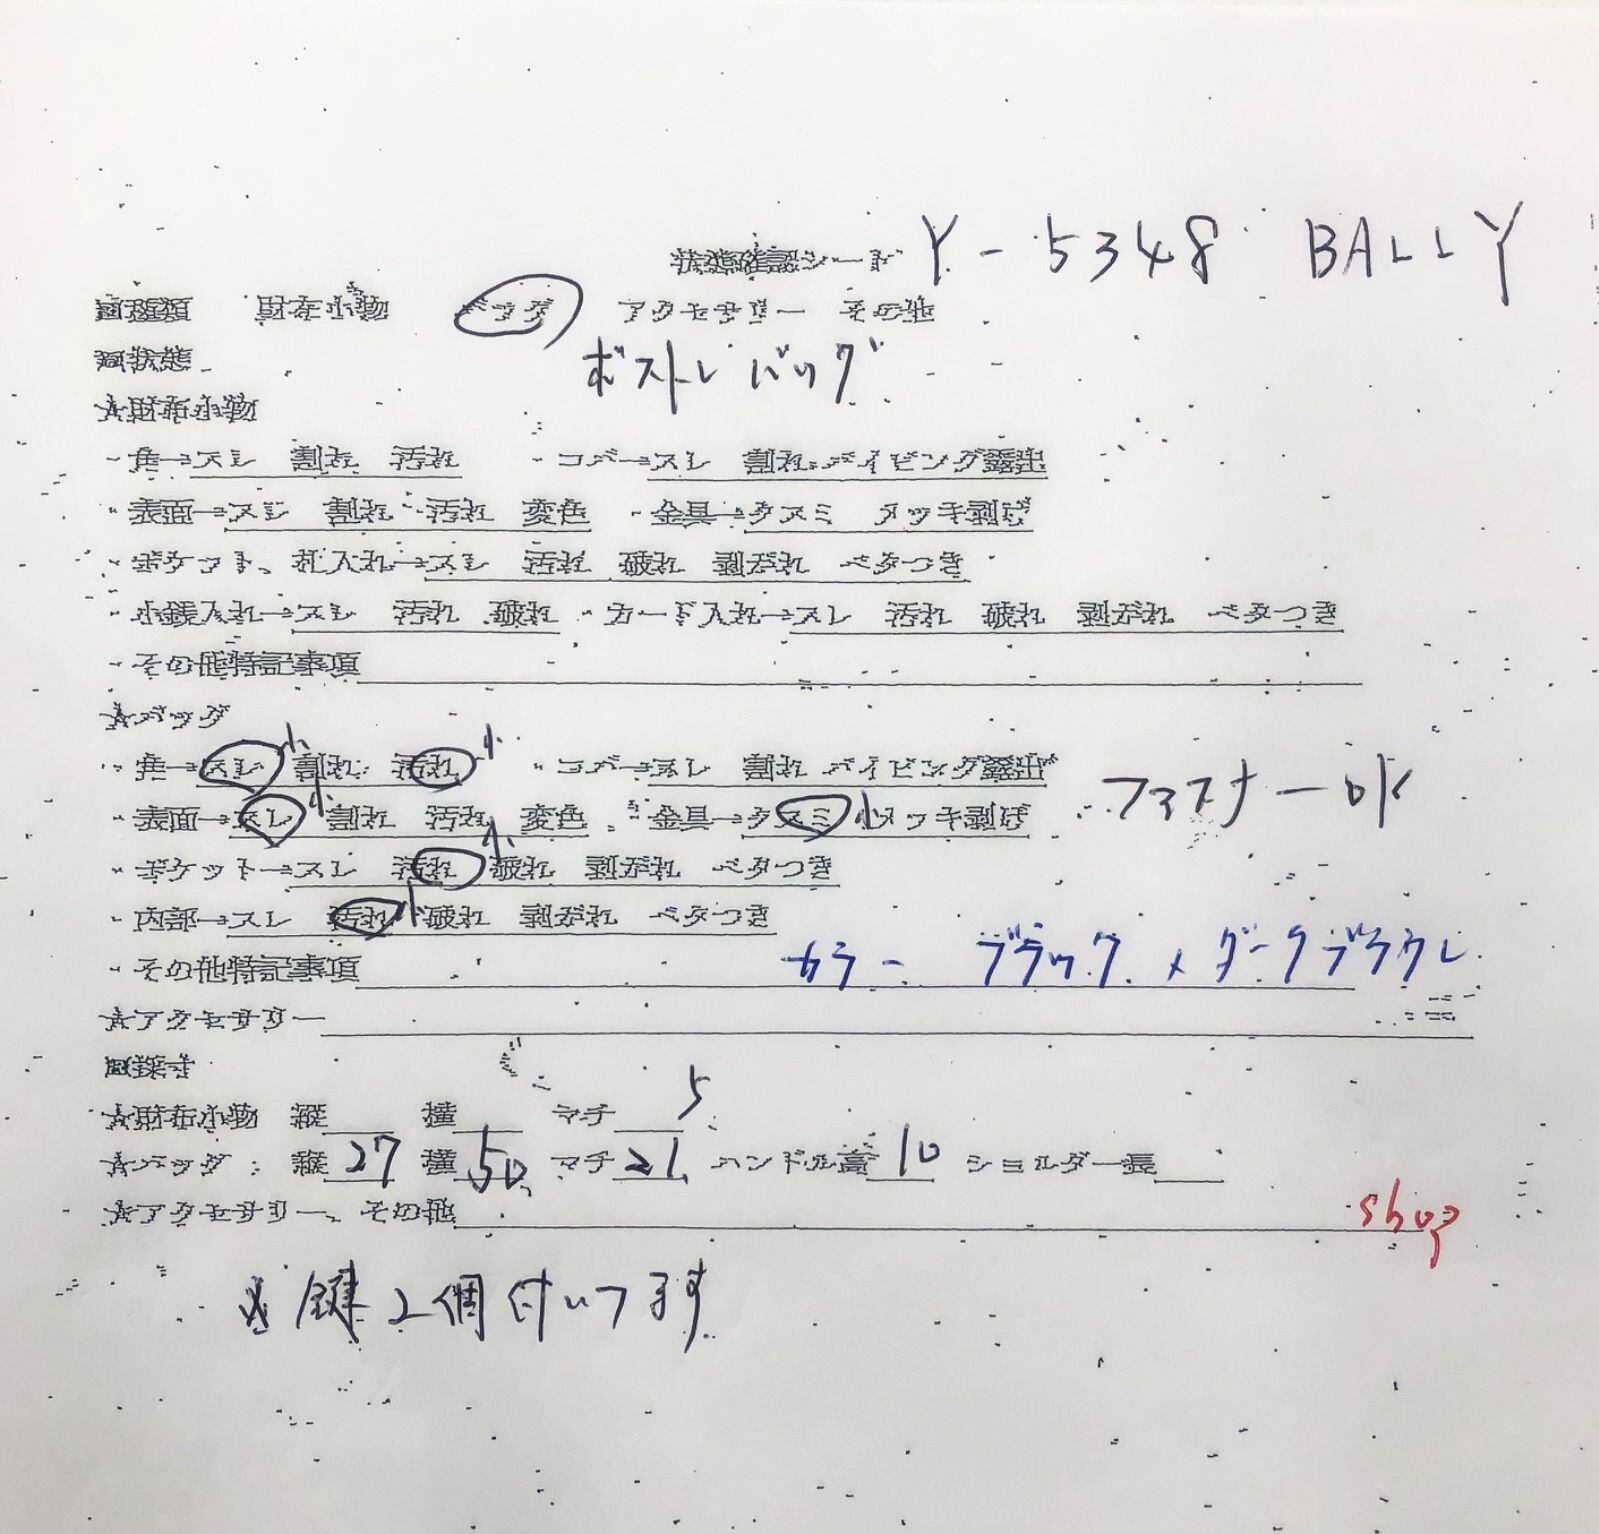 状態確認シート Y-5348 BALLY
種類 財布小物 バッグ アクセサリー その他
状態 ボストンバッグ
☆財布小物
・角→スレ 割れ 汚れ ・コバ→スレ 割れ パイピング露出
・表面→スレ 割れ 汚れ 変色 ・金具→クスミ メッキ剥げ
・ポケット、札入れ→スレ 汚れ 破れ 剥がれ ベタつき
・小銭入れ→スレ 汚れ 破れ ・カード入れ→スレ 汚れ 破れ 剥がれ ベタつき
・その他特記事項
☆バッグ
・角→スレ 小 割れ 汚れ 小 ・コバ→スレ 割れ パイピング露出
・表面→スレ 小 割れ 汚れ 変色 ・金具→クスミ 小 メッキ剥げ ファスナーOK
・ポケット→スレ 汚れ 小 破れ 剥がれ ベタつき
・内部→スレ 汚れ 小 破れ 剥がれ ベタつき
・その他特記事項 カラー ブラック × ダークブラウン
☆アクセサリー
採寸
☆財布小物 縦 横 マチ 5
☆バッグ：縦 27 横 50 マチ 21 ハンドル高 10 ショルダー長
☆アクセサリー、その他 shop
※鍵2個付いてます